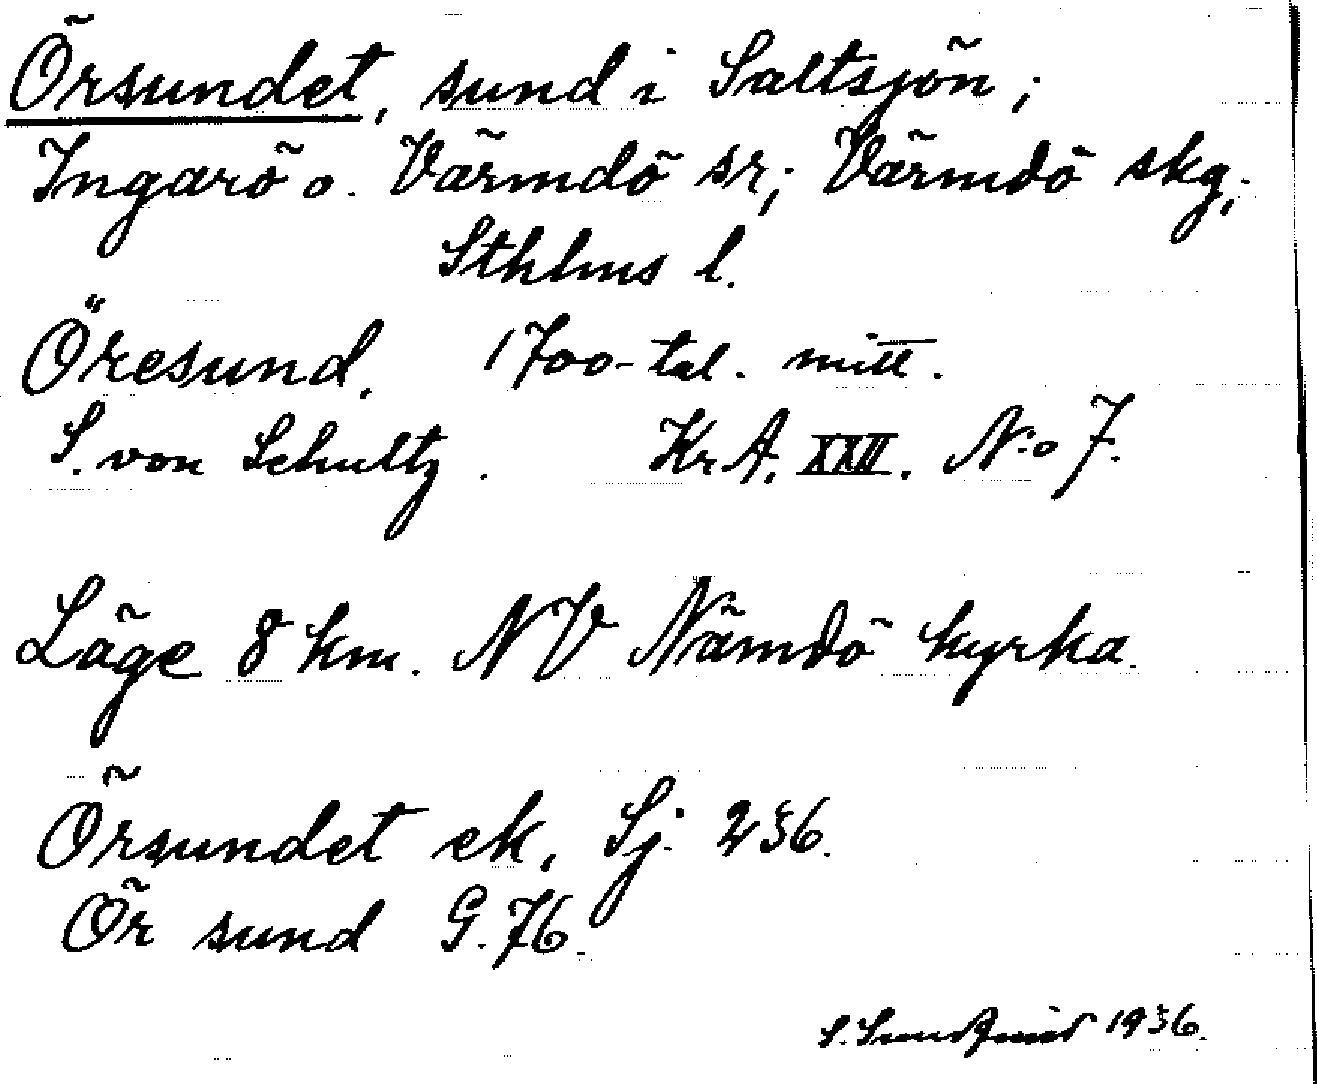 Örsundet, sund i Saltsjön;
Ingarö o. Värmdö sr; Värmdö skg;
Sthlms l.
Öresund. 1700-tal. mitt.
S. von Schultz. KrA. XXII. No 7.
Läge 8 km. NV Nämdö kyrka.
Örsundet ek. Sj. 236.
Ör sund G. 76.
S. 1936.